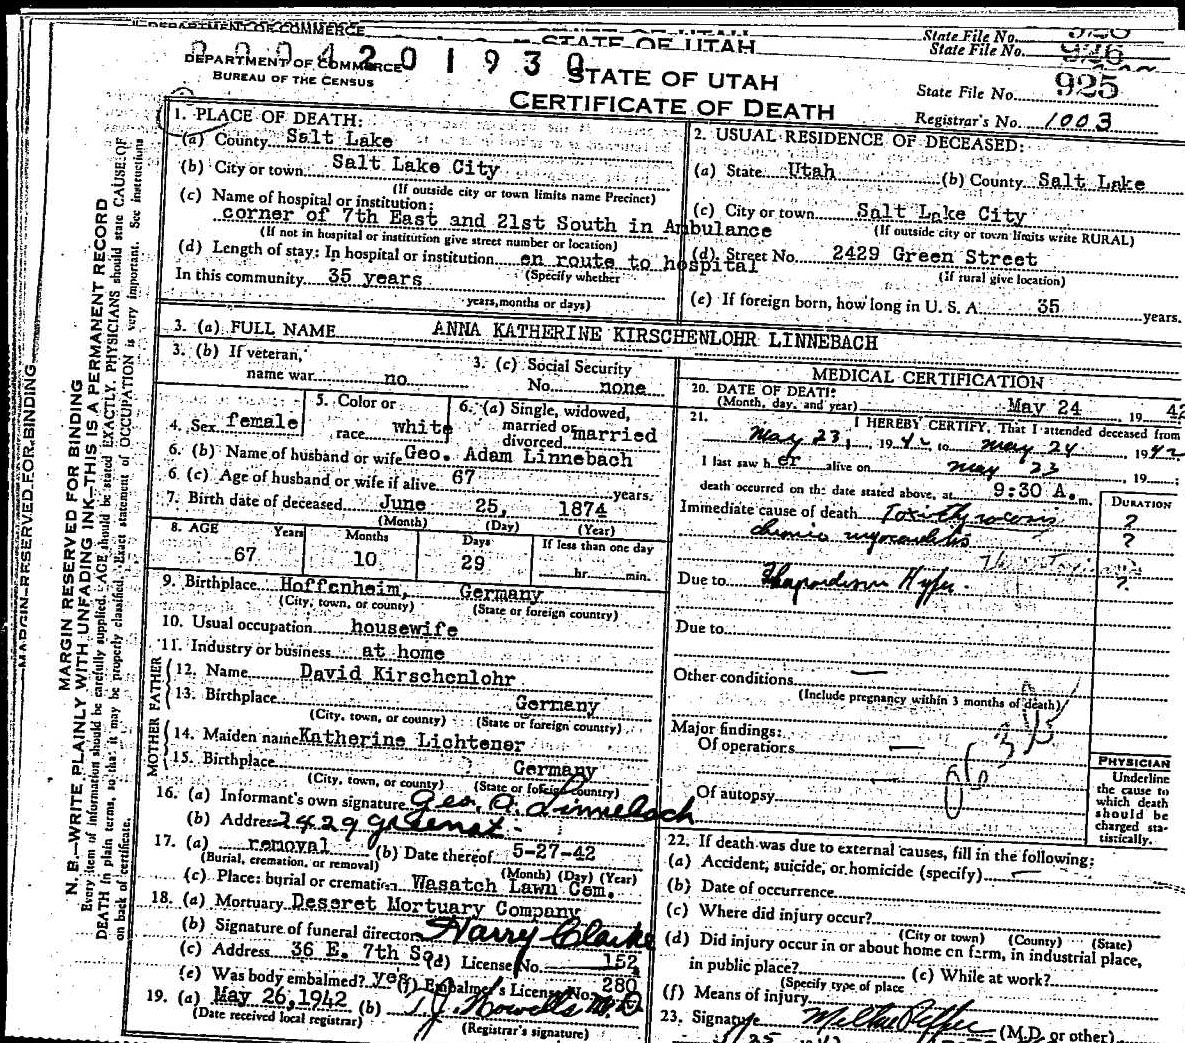 DEPARTMENT OF COMMERCE
STATE OF UTAH
State File No.
State File No. 926
0 0 0 4 2 0 1 9 3 0
DEPARTMENT OF COMMERCE
BUREAU OF THE CENSUS
STATE OF UTAH
CERTIFICATE OF DEATH
State File No. 925
Registrar's No. 1003
1. PLACE OF DEATH:
(a) County Salt Lake
(b) City or town Salt Lake City
(If outside city or town limits name Precinct)
(c) Name of hospital or institution:
corner of 7th East and 21st South in Ambulance
(If not in hospital or institution give street number or location)
(d) Length of stay: In hospital or institution en route to hospital
(Specify whether
In this community 35 years
years, months or days)
2. USUAL RESIDENCE OF DECEASED:
(a) State Utah (b) County Salt Lake
(c) City or town Salt Lake City
(If outside city or town limits write RURAL)
(d) Street No. 2429 Green Street
(if rural give location)
(e) If foreign born, how long in U. S. A. 35 years.
3. (a) FULL NAME ANNA KATHERINE KIRSCHENLOHR LINNEBACH
3. (b) If veteran,
name war no
3. (c) Social Security
No. none
4. Sex female
5. Color or
race white
6. (a) Single, widowed,
married or
divorced married
6. (b) Name of husband or wife Geo. Adam Linnebach
6 (c) Age of husband or wife if alive 67 years.
7. Birth date of deceased June 25, 1874
(Month) (Day) (Year)
8. AGE Years Months Days If less than one day
67 10 29 hr. min.
9. Birthplace Hoffenheim, Germany
(City, town, or county) (State or foreign country)
10. Usual occupation housewife
11. Industry or business at home
FATHER
12. Name David Kirschenlohr
13. Birthplace Germany
(City, town, or county) (State or foreign country)
MOTHER
14. Maiden name Katherine Lichtener
15. Birthplace Germany
(City, town, or county) (State or foreign country)
16. (a) Informant's own signature Geo. A. Linnebach
(b) Address 2429 Green st.
17. (a) removal (b) Date thereof 5-27-42
(Burial, cremation, or removal) (Month) (Day) (Year)
(c) Place: burial or cremation Wasatch Lawn Cem.
18. (a) Mortuary Deseret Mortuary Company
(b) Signature of funeral director Harry Clarke
(c) Address 36 E. 7th So. (d) License No. 152
(e) Was body embalmed? yes (f) Embalmer's License No. 280
19. (a) May 26, 1942 (b) T. J. Howells M.D.
(Date received local registrar) (Registrar's signature)
MEDICAL CERTIFICATION
20. DATE OF DEATH:
(Month, day, and year) May 24 19 42
21. I HEREBY CERTIFY, That I attended deceased from
May 23, 1942 to May 24, 1942
I last saw her alive on May 23, 19 ;
death occurred on the date stated above, at 9:30 A. m.
DURATION
Immediate cause of death ?
chronic myocarditis ?
Due to Hyper ?
Due to
Other conditions —
(Include pregnancy within 3 months of death)
Major findings:
Of operations —
Of autopsy —
PHYSICIAN
Underline
the cause to
which death
should be
charged sta-
tistically.
22. If death was due to external causes, fill in the following:
(a) Accident, suicide, or homicide (specify) —
(b) Date of occurrence
(c) Where did injury occur?
(City or town) (County) (State)
(d) Did injury occur in or about home on farm, in industrial place,
in public place? (e) While at work?
(Specify type of place
(f) Means of injury
23. Signature (M.D. or other)
MARGIN RESERVED FOR BINDING
MARGIN RESERVED FOR BINDING
N. B.—WRITE PLAINLY WITH UNFADING INK—THIS IS A PERMANENT RECORD
Every item of information should be carefully supplied. AGE should be stated EXACTLY. PHYSICIANS should state CAUSE OF
DEATH in plain terms, so that it may be properly classified. Exact statement of OCCUPATION is very important. See instructions
on back of certificate.